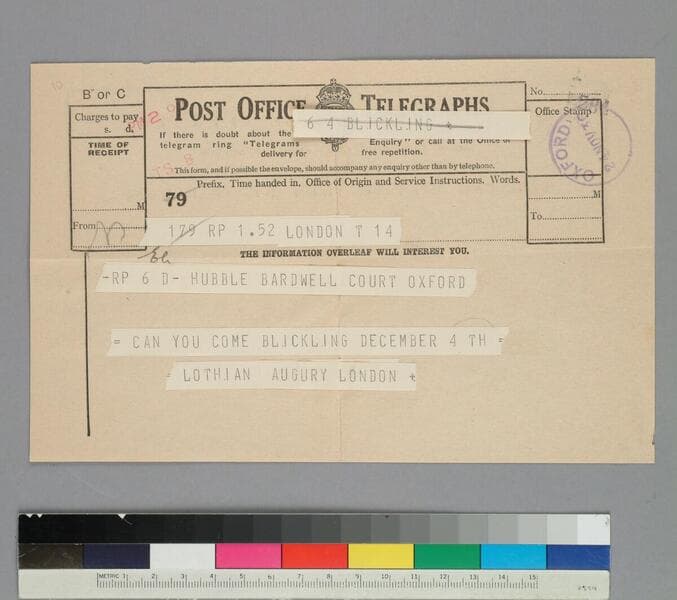 B or C
Charges to pay
s. d.
TIME OF
RECEIPT
M
From
POST OFFICE TELEGRAPHS
6 4 BLICKLING +
If there is doubt about the
telegram ring "Telegrams
delivery for
Enquiry" or call at the Office of
free repetition.
This form, and if possible the envelope, should accompany any enquiry other than by telephone.
Prefix. Time handed in. Office of Origin and Service Instructions. Words.
79
No.
Office Stamp
OXFORD
M
To
179 RP 1.52 LONDON T 14
THE INFORMATION OVERLEAF WILL INTEREST YOU.
-RP 6 D- HUBBLE BARDWELL COURT OXFORD
= CAN YOU COME BLICKLING DECEMBER 4 TH =
= LOTHIAN AUGURY LONDON +
METRIC 1 2 3 4 5 6 7 8 9 10 11 12 13 14 15